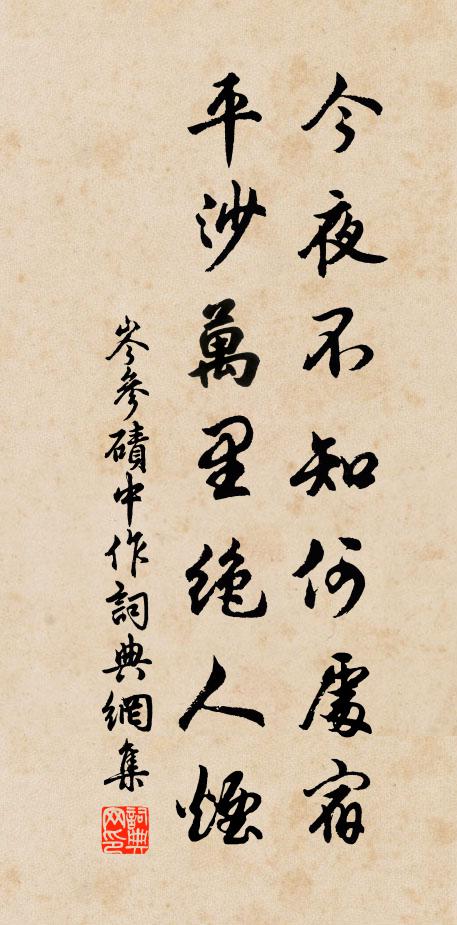 今夜不知何處宿
平沙萬里絶人煙
岑參磧中作詞典網集
詞典网印